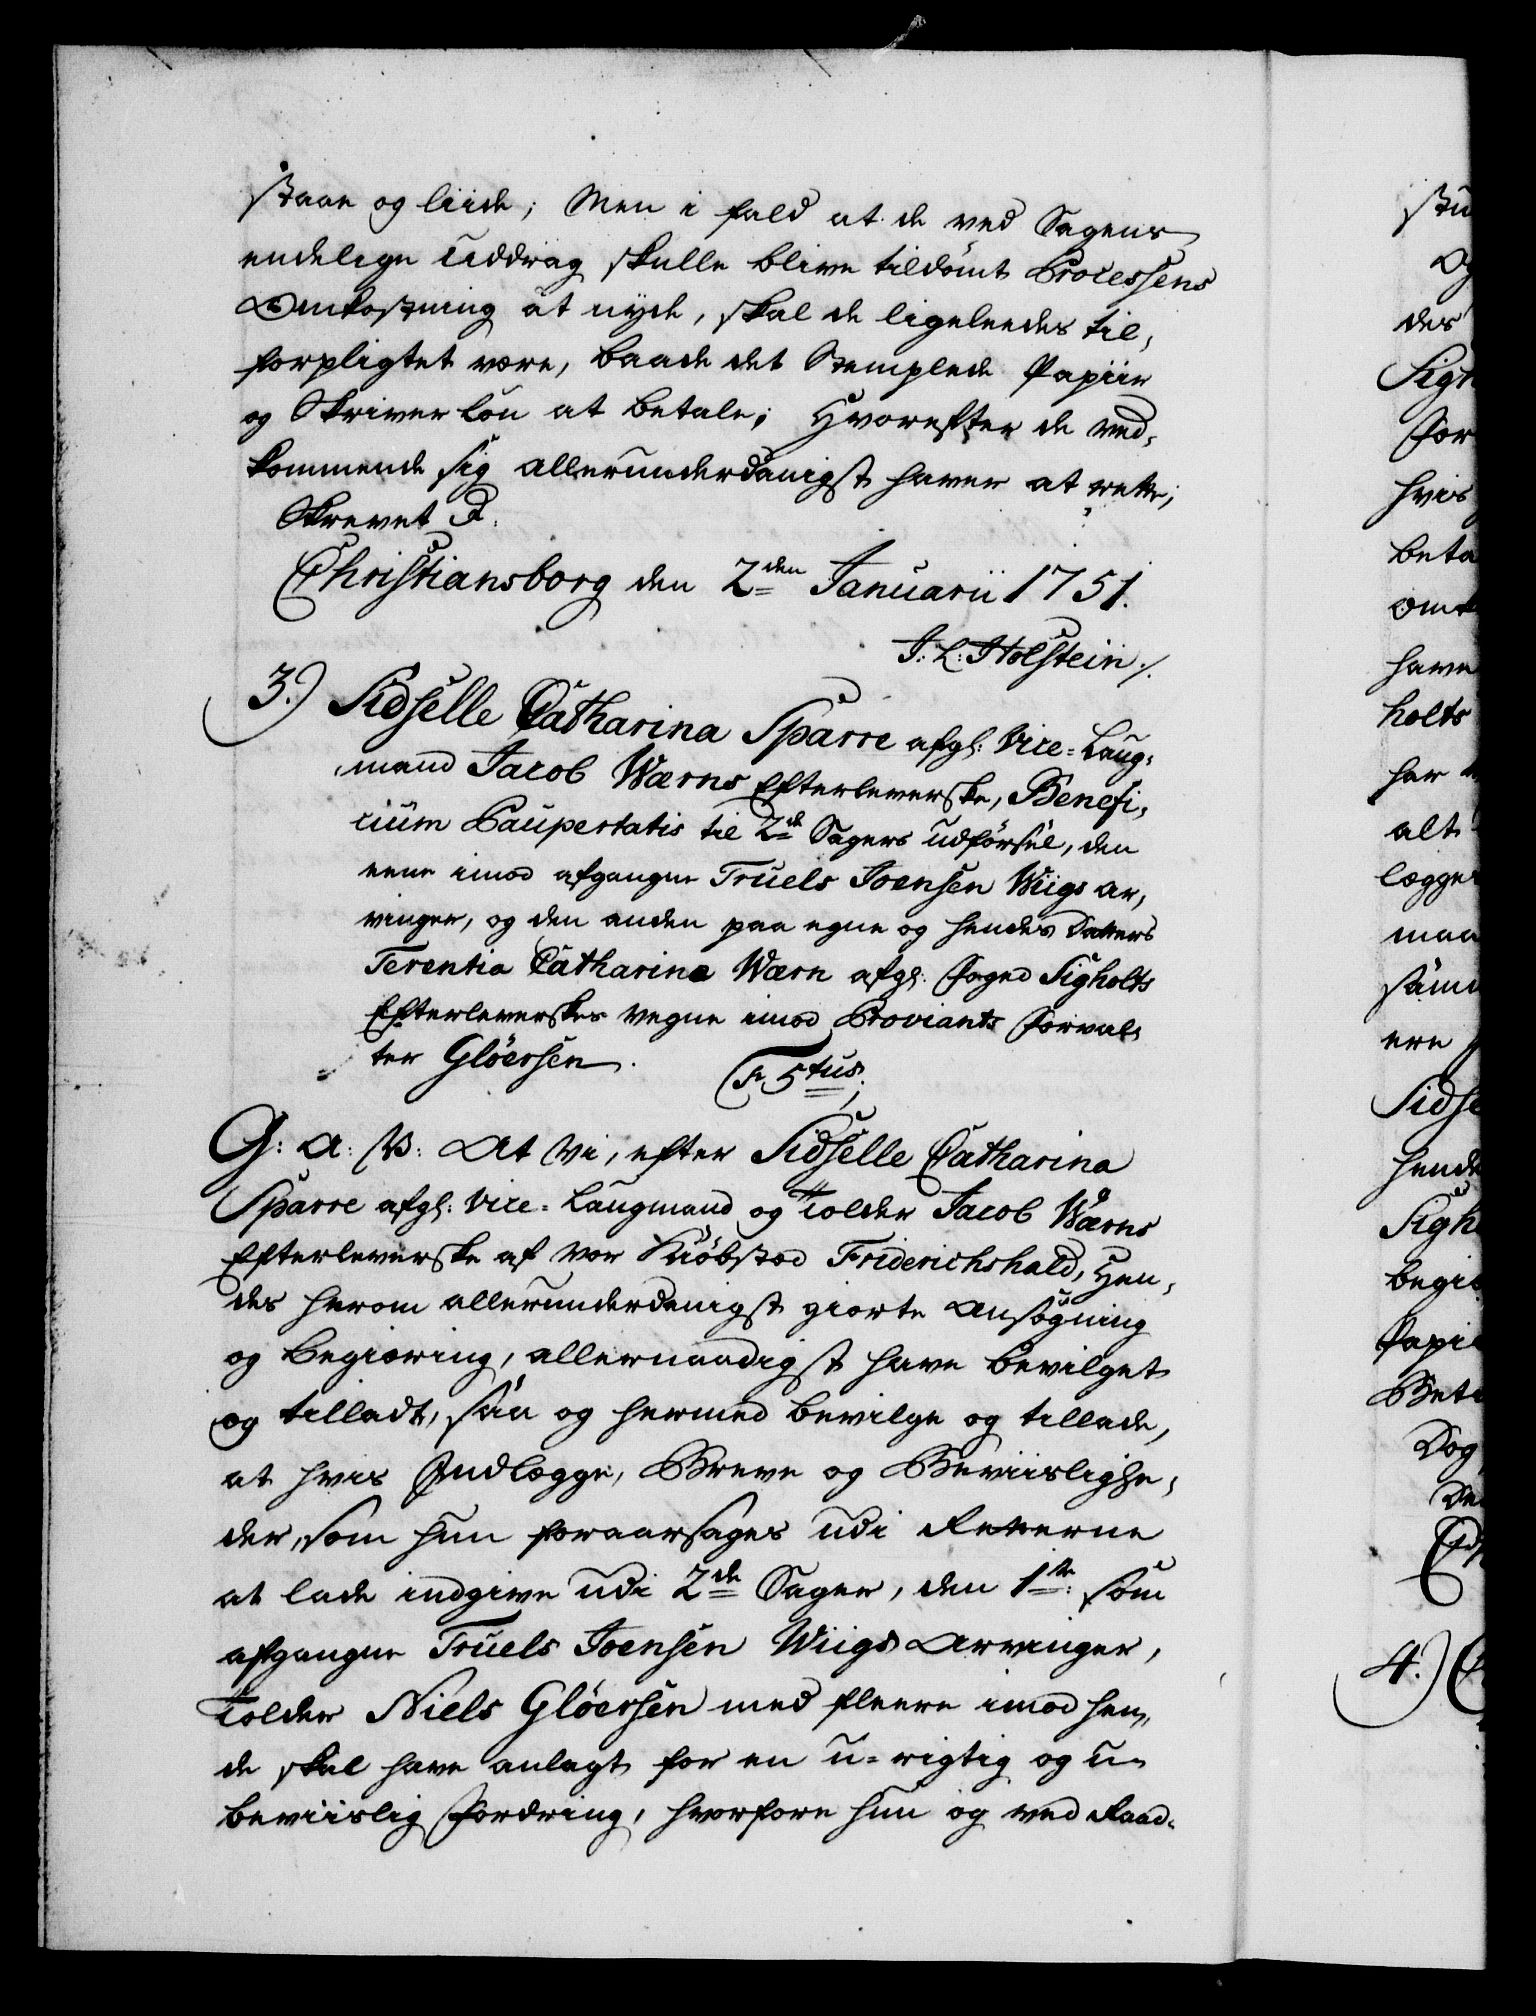 staae og liide; Men i fald at de ved Sagens
endelige Uddrag skulle blive tildömt Processens
Omkostning at nyde, skal de ligeleedes til,
forpligtet være, baade det Stemplede Papiir
og Skriver lön at betale; Hvorefter de ved,
kommende sig allerunderdanigst haver at rette;
Skrevet &.
Christiansborg den 2den Januarii 1751.
J: L: Holstein ./.
3.) Sidselle Catharina Sparre afgl: Vice-Laug,
mand Jacob Wærns Efterleverske, Benefi,
cium Paupertatis til 2de Sagers udförsel, den
eene imod afgangne Truels Joensen Wiigs ar,
vinger, og den anden paa egne og hendes Datters
Terentia Catharina Wærn afgl: Foged Sigholts
Efterleverskes vegne imod Proviants Forval,
ter Glöersen.
F. 5tus.
G: A: V: At Vi, efter Sidselle Catharina
Sparre afgl: Vice-Laugmand og Tolder Jacob Wærns
Efterleverske af vor Kiöbstæd Friderichshald, Hen,
des herom allerunderdanigst giorte Ansögning
og Begiæring, allernaadigst have bevilget
og tilladt, saa og hermed bevilge og tillade,
at hvis Indlægge, Breve og Beviislighe,
der, som hun foraarsages udi Retterne
at lade indgive udi 2de Sager, den 1te som
afgangne Truels Joensen Wiigs Arvinger,
Tolder Niels Glöersen med fleere imod hen,
de skal have anlagt for en u-rigtig og u-
beviislig Fordring, hvorfore hun og ved Raad-
stu
Og
des
Sigh
For
hvis
beta
omk
have
holts
har
alt
lægge
maa
samm
ere
Sidse
hende
Sigh
begi
Papi
Bet
Dog
4.)